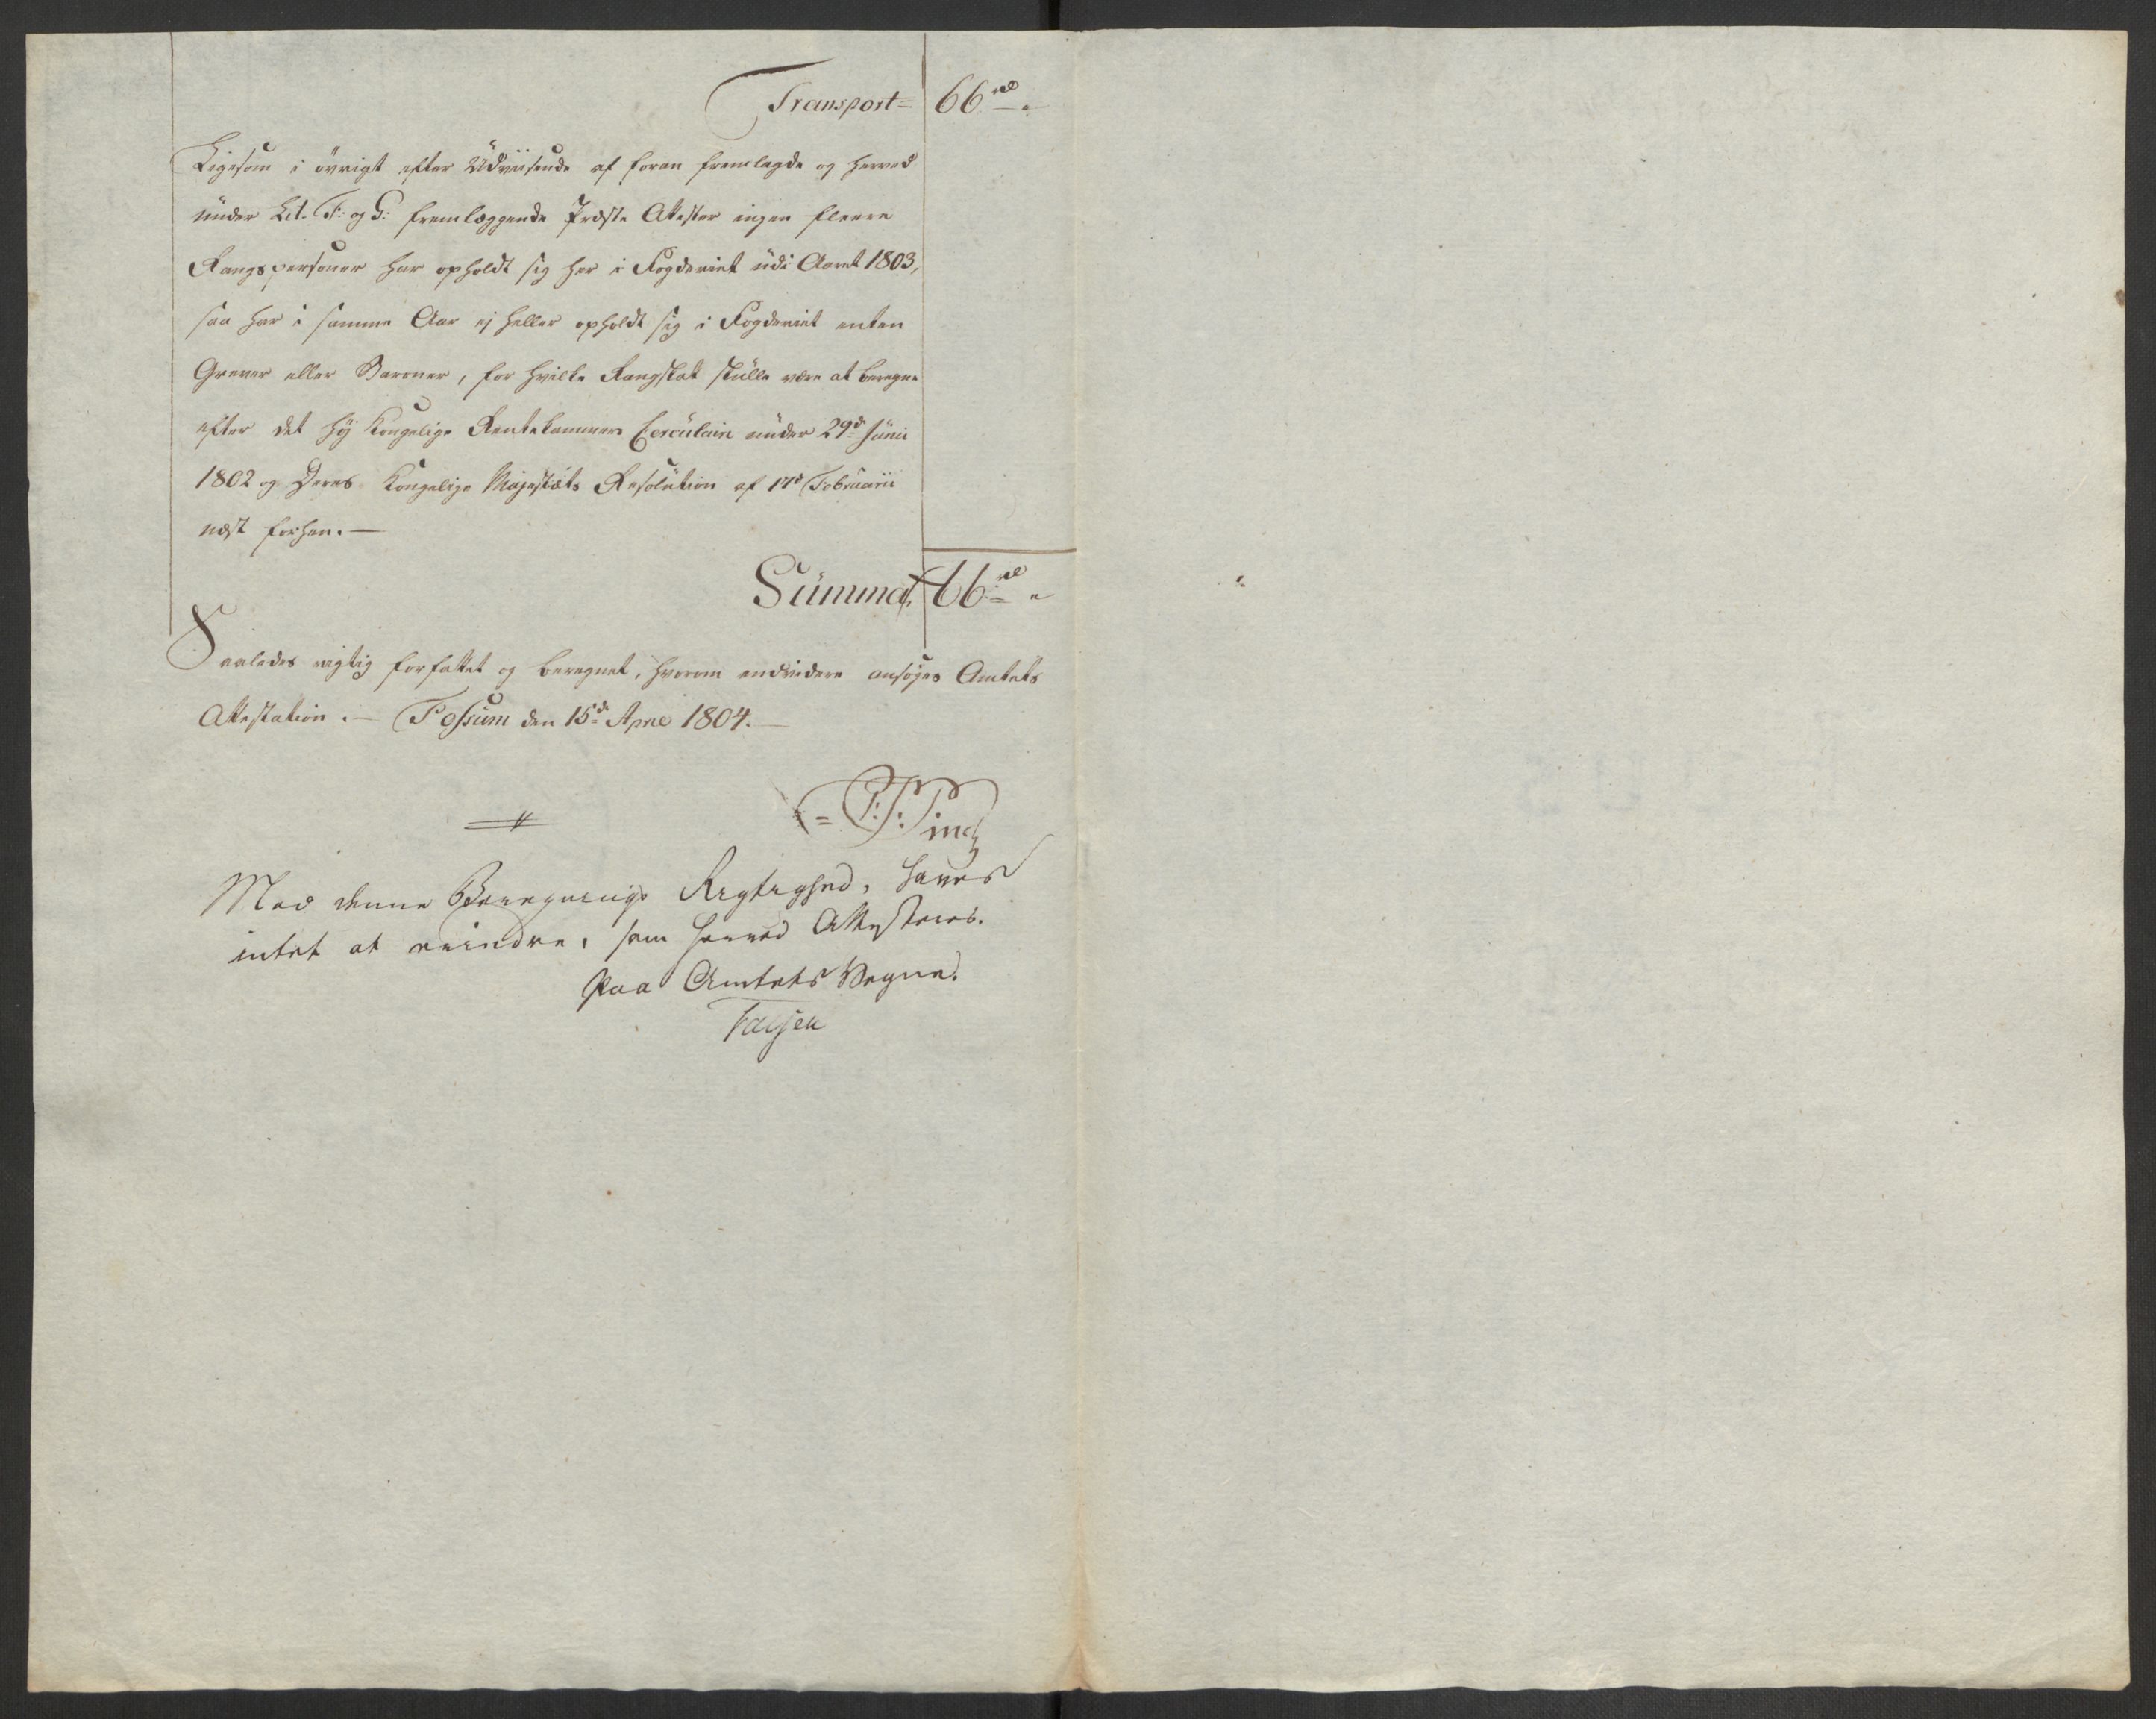 Transport= 66 rd -"
Ligesom i øvrigt efter Udviisende af foran fremlagde og herved
under Lit. F: og G: fremlæggende Præste Attester ingen fleere
Rangspersoner har opholdt sig her i Fogderiet udi Aaret 1803,
saa har i samme Aar ej heller opholdt sig i Fogderiet enten
Grever eller Baroner, for hvilke Rangskat skulle være at beregne
efter det høj Kongelige Rentekammers Cerculaire under 29de Junii
1802 og Deres Kongelige Majestæts Resolution af 17d Februarii
næst forhen. —
Summa 66 rd - "
Saaledes rigtig forfattet og beregnet, hvorom endvidere ansøges Amtets
Attestation. — Fossum den 15de April 1804. —
Med denne Beregnings Rigtighed, haves
intet at erindre, som herved Attesteres.
Paa Amtets Vegne.
Falsen